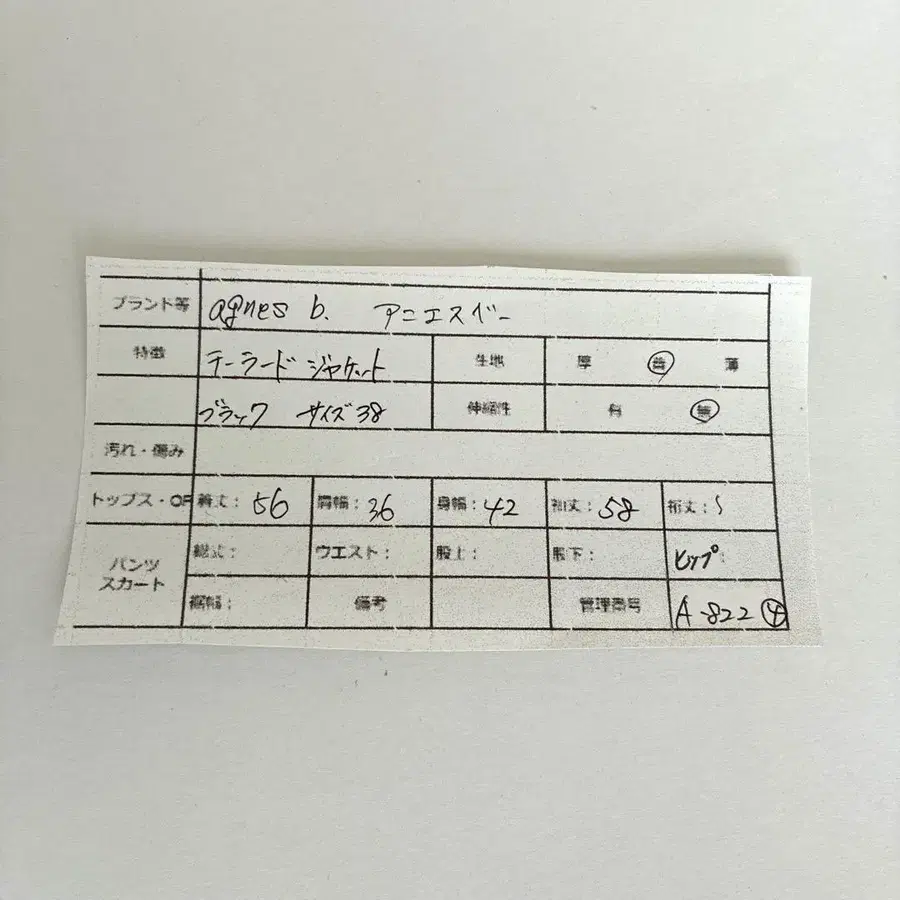 ブランド等 agnes b. アニエスベー
特徴 テーラード ジャケット 生地 厚 普 薄
ブラック サイズ38 伸縮性 有 無
汚れ・傷み
トップス・OP 着丈: 56 肩幅: 36 身幅: 42 袖丈: 58 裄丈: S
パンツ スカート 総丈: ウエスト: 股上: 股下: ヒップ:
裾幅: 備考 管理番号 A-822 ④